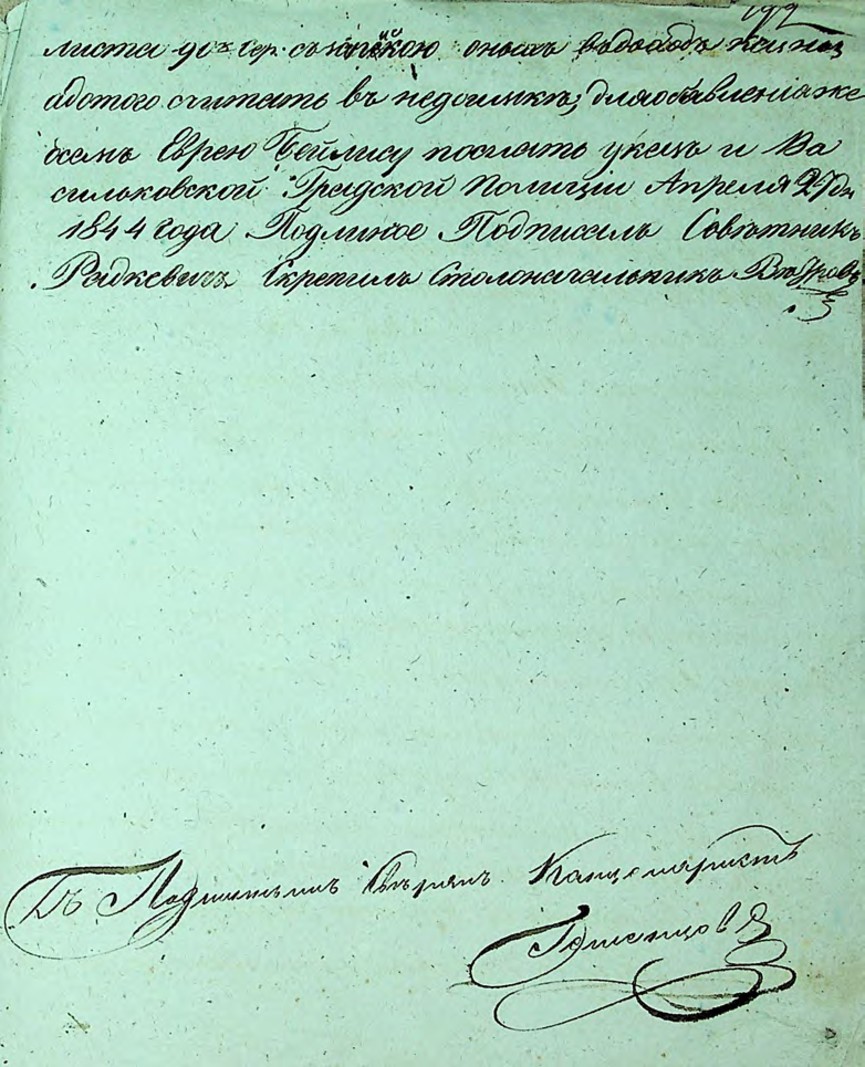 192
листа 90 к. сер. съ коп́ейкою оныхъ въ доходъ казны
а до того считать въ недоимкѣ; для объявленія же
о семъ Еврею Бейлису послать указъ и Ва
сильковской Градской Полиціи Апреля 27 дн
1844 года Подлиное Подписалъ Совѣтникъ
Радкевичъ Скрепилъ Столоначальникъ
Съ Подлинымъ вѣрилъ Канцеляристъ